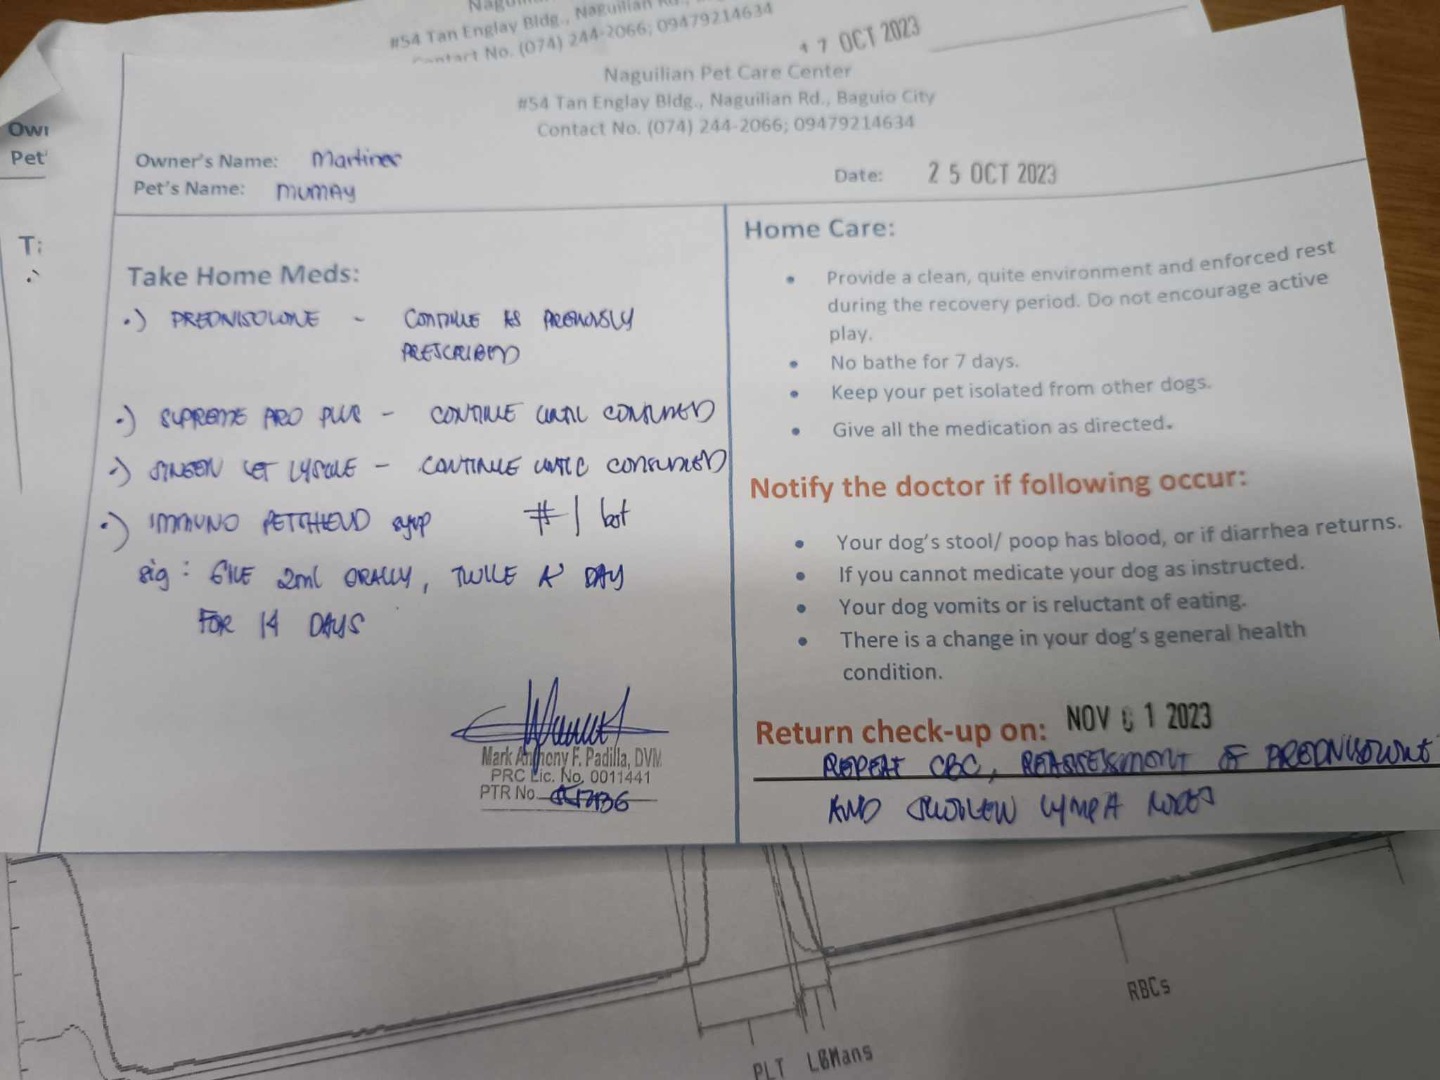 #54 Tan Englay Bldg., Naguilian Rd.,
Contact No. (074) 244-2066; 09479214634
17 OCT 2023
Naguilian Pet Care Center
#54 Tan Englay Bldg., Naguilian Rd., Baguio City
Contact No. (074) 244-2066; 09479214634
Owner's Name: Martinez
Pet's Name: MUMAY
Date: 25 OCT 2023
Take Home Meds:
•) PREDNISOLONE - CONTINUE AS PREVIOUSLY
PRESCRIBED
•) SUPREME PRO PLUS - CONTINUE UNTIL CONSUMED
•) VET LYSINE - CONTINUE UNTIL CONSUMED
•) IMMUNO syrup #1 bot
sig: GIVE 2ml ORALLY, TWICE A DAY
FOR 14 DAYS
Mark Anthony F. Padilla, DVM
PRC Lic. No. 0011441
PTR No.
Home Care:
• Provide a clean, quite environment and enforced rest
during the recovery period. Do not encourage active
play.
• No bathe for 7 days.
• Keep your pet isolated from other dogs.
• Give all the medication as directed.
Notify the doctor if following occur:
• Your dog's stool/ poop has blood, or if diarrhea returns.
• If you cannot medicate your dog as instructed.
• Your dog vomits or is reluctant of eating.
• There is a change in your dog's general health
condition.
Return check-up on: NOV 01 2023
REPEAT CBC, REASSESSMENT OF PREDNISOLONE
AND SWOLLEN LYMPH NODES
Own
Pet'
T:
RBCs
PLT